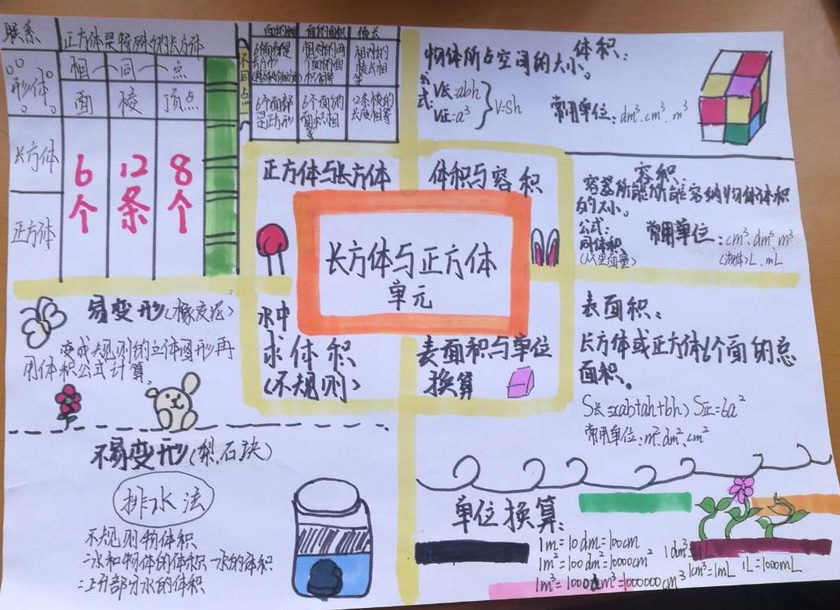 联系
正方体是特殊的长方体
形体
相同点
面
棱
顶点
不同点
长方体
正方体
6个
12条
8个
面的形状
面的面积
棱长
6个面都是正方形
6个面的面积相等
12条棱的长度相等
正方体与长方体
体积与容积
长方体与正方体
单元
水中
求体积
(不规则)
表面积与单位
换算
体积:
物体所占空间的大小。
公式:
V长=abh
V正=a³
V=Sh
常用单位:dm³.cm³.m³
容积:
容器所能所能容纳物体体积
的大小。
公式:
同体积
(从里面量)
常用单位:cm³.dm³.m³
(液体)L.mL
表面积:
长方体或正方体6个面的总
面积。
S长=2(ab+ah+bh) S正=6a²
常用单位:m².dm².cm²
易变形(橡皮泥)
变成规则的立体图形再
用体积公式计算。
不易变形(梨.石块)
排水法
不规则物体积
=水和物体的体积-水的体积
=上升部分水的体积
单位换算:
1m=10dm=100cm
1m²=100dm²=10000cm²
1m³=1000dm³=1000000cm³
1dm³=1L
1cm³=1mL
1L=1000mL